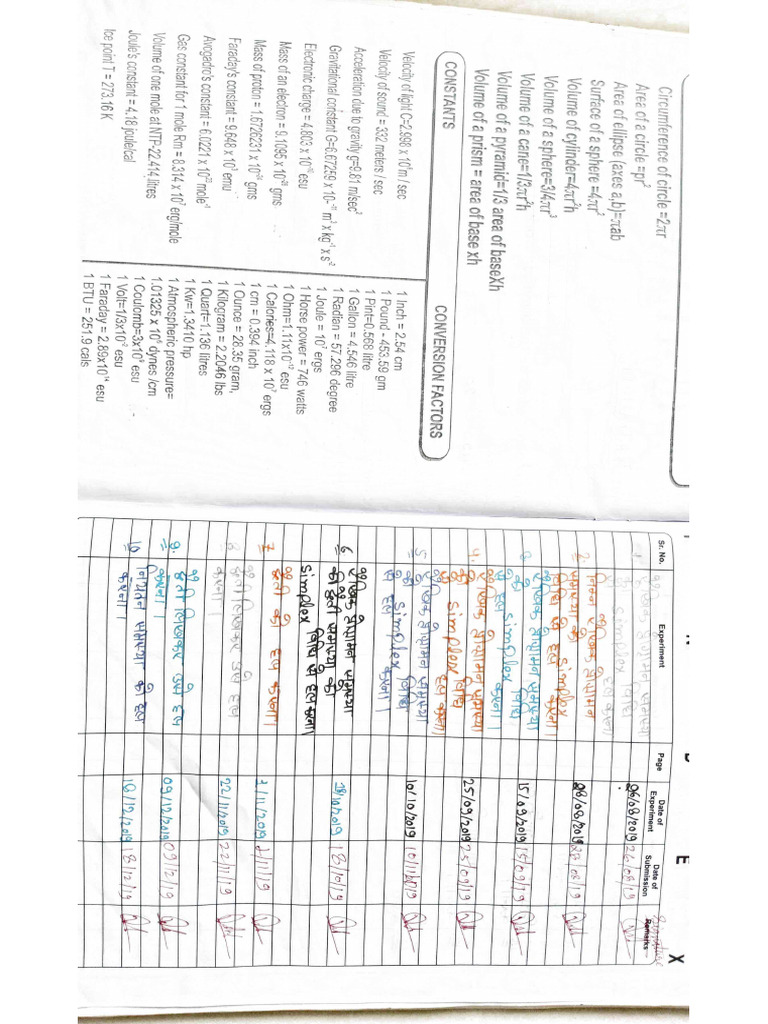 Circumference of circle =2πr
Area of a circle =pr²
Area of ellipse (axes a,b)=πab
Surface of a sphere =4πr²
Volume of cylinder=4πr²h
Volume of a sphere=3/4πr³
Volume of a cane=1/3πr²h
Volume of a pyramid=1/3 area of baseXh
Volume of a prism = area of base xh
CONSTANTS
Velocity of light C=2.998 x 10⁸m / sec
Velocity of sound = 332 meters / sec
Acceleration due to gravity g=9.81 m/sec²
Gravitational constant G=6.67259 x 10⁻¹¹ m³ x kg⁻¹ x s⁻²
Electronic charge = 4.803 x 10⁻¹⁰ esu
Mass of an electron = 9.1095 x 10⁻²⁸ gms
Mass of proton = 1.6726231 x 10⁻²⁴ gms
Faraday's constant = 9.648 x 10³ emu
Avogadro's constant = 6.0221 x 10²³ mole⁻¹
Gas constant for 1 mole Rm = 8.314 x 10⁷ erg/mole
Volume of one mole at NTP-22.414 litres
Joule's constant = 4.18 joule/cal
Ice point T = 273.16 K
CONVERSION FACTORS
1 Inch = 2.54 cm
1 Pound - 453.59 gm
1 Pint=0.568 litre
1 Gallon = 4.546 litre
1 Radian = 57.296 degree
1 Joule = 10⁷ ergs
1 Horse power = 746 watts
1 Ohm=1.11x10⁻¹² esu
1 Calories=4.118 x 10⁷ ergs
1 cm = 0.394 inch
1 Ounce = 28.35 gram,
1 Kilogram = 2.2046 lbs
1 Quart=1.136 litres
1 Kw=1.3410 hp
1 Atmospheric pressure=
1.01325 x 10⁶ dynes /cm
1 Coulomb=3x10⁹ esu
1 Volt=1/3x10⁻² esu
1 Faraday = 2.89x10¹⁴ esu
1 BTU = 251.9 cals
N D E X
Sr. No. Experiment Page Date of Experiment Date of Submission Remarks
रैखिक प्रोग्रामन समस्या
simplex विधि
से हल करना। 06/08/2019 26/08/19
2. निम्न रैखिक प्रोग्रामन
समस्या को simplex
विधि से हल करना। 28/08/2019 28/08/19
3. रैखिक प्रोग्रामन समस्या
को simplex विधि
से हल करना। 15/09/2019 15/09/19
4. रैखिक प्रोग्रामन समस्या
को simplex विधि
से हल करना। 25/09/2019 25/09/19
5. रैखिक प्रोग्रामन समस्या
को simplex विधि
से हल करना। 10/10/2019
6. रैखिक प्रोग्रामन समस्या
की द्वैती समस्या को
simplex विधि से हल करना। 18/10/2019 18/10/19
7. द्वैती को हल करना। 2/11/2019 2/11/19
8. द्वैती लिखकर उसे हल
करना। 22/11/2019 22/11/19
9. द्वैती लिखकर उसे हल
करना। 09/12/2019 09/12/19
10 नियतन समस्या को हल
करना। 18/12/2019 18/12/19